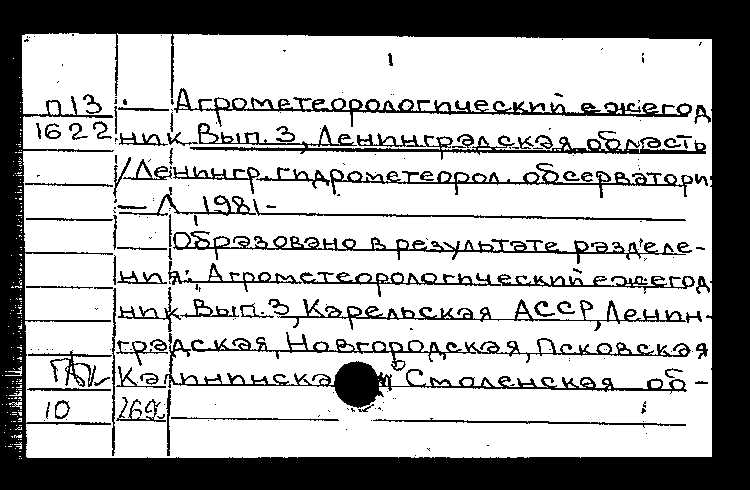 п13 Агрометеорологический ежегод
1622 ник Вып. 3, Ленинградская область
/Ленингр. гидрометеорол. обсерватория
— Л, 1981-
Образовано в результате разделе-
ния: Агрометеорологический ежегод
ник, Вып. 3, Карельская АССР, Ленин-
градская, Новгородская, Псковская
Калининска Смоленская об-
10